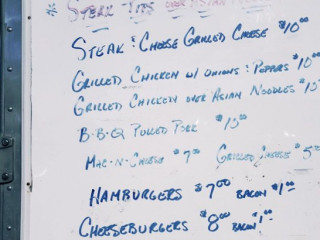 STEAK TIPS OVER ASIAN
STEAK & CHEESE GRILLED CHEESE $10⁰⁰
GRILLED CHICKEN W/ ONIONS & PEPPERS $10⁰⁰
GRILLED CHICKEN OVER ASIAN NOODLES $10
B-B-Q PULLED PORK $10⁰⁰
MAC-N-CHEESE $7⁰⁰ GRILLED CHEESE $5
HAMBURGERS $7⁰⁰ BACON $1⁰⁰
CHEESEBURGERS $8⁰⁰ BACON $1⁰⁰